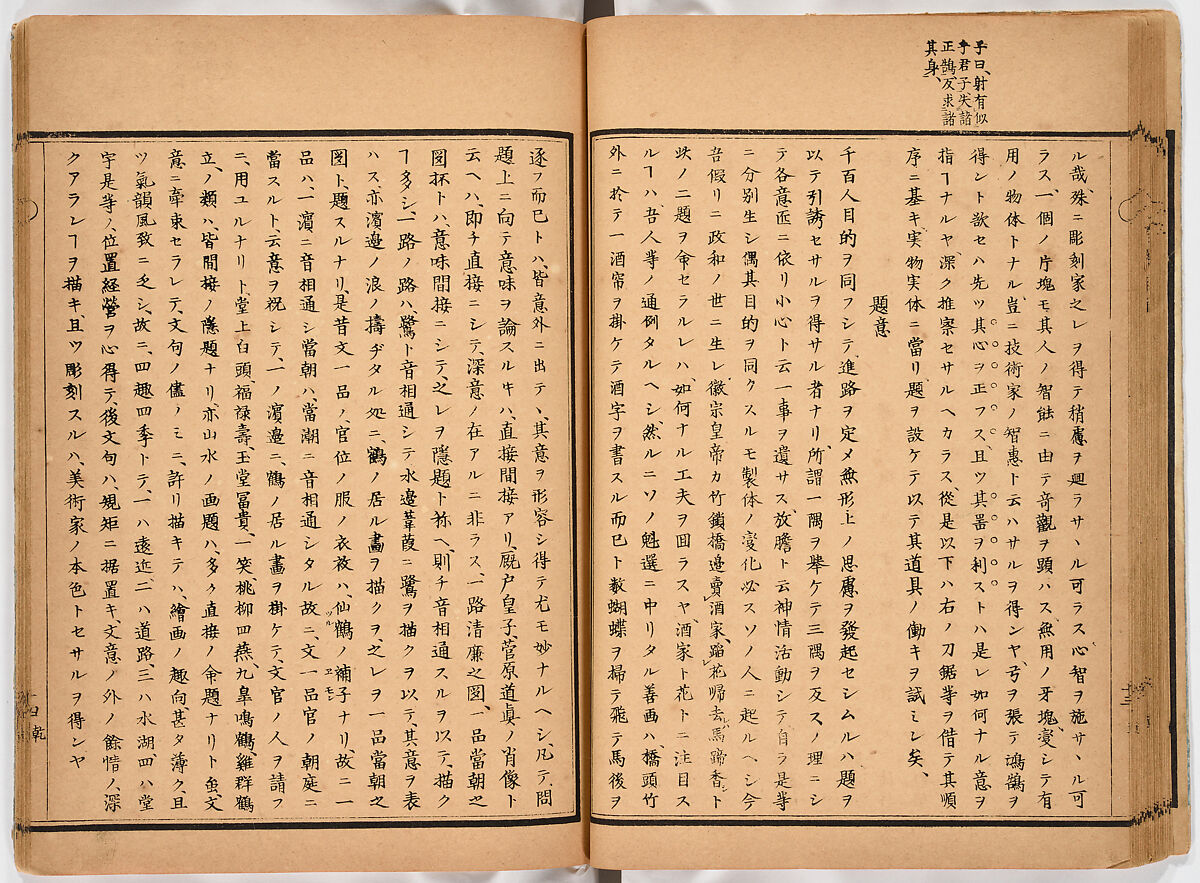 子曰、射有似
乎君子、失諸
正鵠、反求諸
其身、
ル哉、殊ニ彫刻家之レヲ得テ稍慮ヲ廻ラサヽル可ラス心智ヲ施サヽル可
ラス、一個ノ片塊モ其人ノ智能ニ由テ奇觀ヲ顕ハス、無用ノ牙塊、変シテ有
用ノ物体トナル、豈ニ技術家ノ智惠ト云ハサルヲ得ンヤ、弓ヲ張テ鴻鵠ヲ
得ント欲セハ先ツ其心ヲ正フス、且ツ其噐ヲ利ストハ是レ如何ナル意ヲ
指ヿナルヤ深ク推察セサルヘカラス、從是以下ハ右ノ刀鋸等ヲ借テ其順
序ニ基キ実物実体ニ當リ題ヲ設ケテ以テ其道具ノ働キヲ試ミン矣、
題意
千百人目的ヲ同フシテ、進路ヲ定メ無形上ノ思慮ヲ發起セシムルハ題ヲ
以テ引誘セサルヲ得サル者ナリ、所謂一隅ヲ擧ケテ三隅ヲ反スノ理ニシ
テ各意匠ニ依リ小心ト云一事ヲ遺サス、放膽ト云神情活動シテ、自ラ是等
ニ分別生シ偶其目的ヲ同クスルモ製体ノ変化必スソノ人ニ起ルヘシ今
吾假リニ政和ノ世ニ生レ徽宗皇帝カ竹鎖橋邊賣酒家、踏花歸去馬蹄香ント
此ノ二題ヲ命セラルレハ、如何ナル工夫ヲ回ラスヤ、酒家ト花トニ注目ス
ルヿハ、吾人等ノ通例タルヘシ、然ルニソノ魁選ニ中リタル善画ハ、橋頭竹
外ニ於テ一酒帘ヲ掛ケテ酒字ヲ書スル而已ト数蝴蝶ヲ掃テ飛テ馬後ヲ
逐フ而已トハ、皆意外ニ出テヽ、其意ヲ形容シ得テ尤モ妙ナルヘシ、凡テ、問
題上ニ向テ意味ヲ論スルキハ、直接間接アリ、厩戸皇子、菅原道眞ノ肖像ト
云ヘハ、即チ直接ニシテ、深意ノ在アルニ非ラス、一路清廉之図、一品當朝之
図抔トハ、意味間接ニシテ、之レヲ隱題ト称ヘ、則チ音相通スルヲ以テ、描ク
ヿ多シ、一路ノ路ハ鷺ト音相通シテ水邊葦葭ニ鷺ヲ描クヲ以テ、其意ヲ表
ハス、亦濱邊ノ浪ノ擣ヂタル処ニ、鶴ノ居ル畵ヲ描クヲ、之レヲ一品當朝之
図ト、題スルナリ、是昔文一品ノ官位ノ服ノ衣紋ハ、仙鶴ノ補子ナリ、故ニ一
品ハ、一濵ニ音相通シ當朝ハ、當潮ニ音相通シタル故ニ、文一品官ノ朝庭ニ
當スルト云意ヲ祝シテ、一ノ濵邊ニ、鶴ノ居ル畵ヲ掛ケテ、文官ノ人ヲ請フ
ニ、用ユルナリト、堂上白頭、福祿壽、玉堂冨貴、一笑、桃柳四燕、九皐鳴鶴、雞群鶴
立、ノ類ハ、皆間接ノ隱題ナリ亦山水ノ画題ハ、多ク直接ノ命題ナリト虽、文
意ニ牽束セラレテ、文句ノ儘ノミニ、許リ描キテハ、繪画ノ趣向甚タ薄ク、且
ツ氣韻風致ニ乏シ、故ニ、四趣四季トテ、一ハ遠近、二ハ道路、三ハ水湖、四ハ堂
宇是等ノ、位置経營ヲ心得テ、後文句ハ、規矩ニ据置キ、文意ノ外ノ餘情ノ、深
クアランヿヲ描キ、且ツ彫刻スルハ、美術家ノ本色トセサルヲ得ンヤ
十四 乾